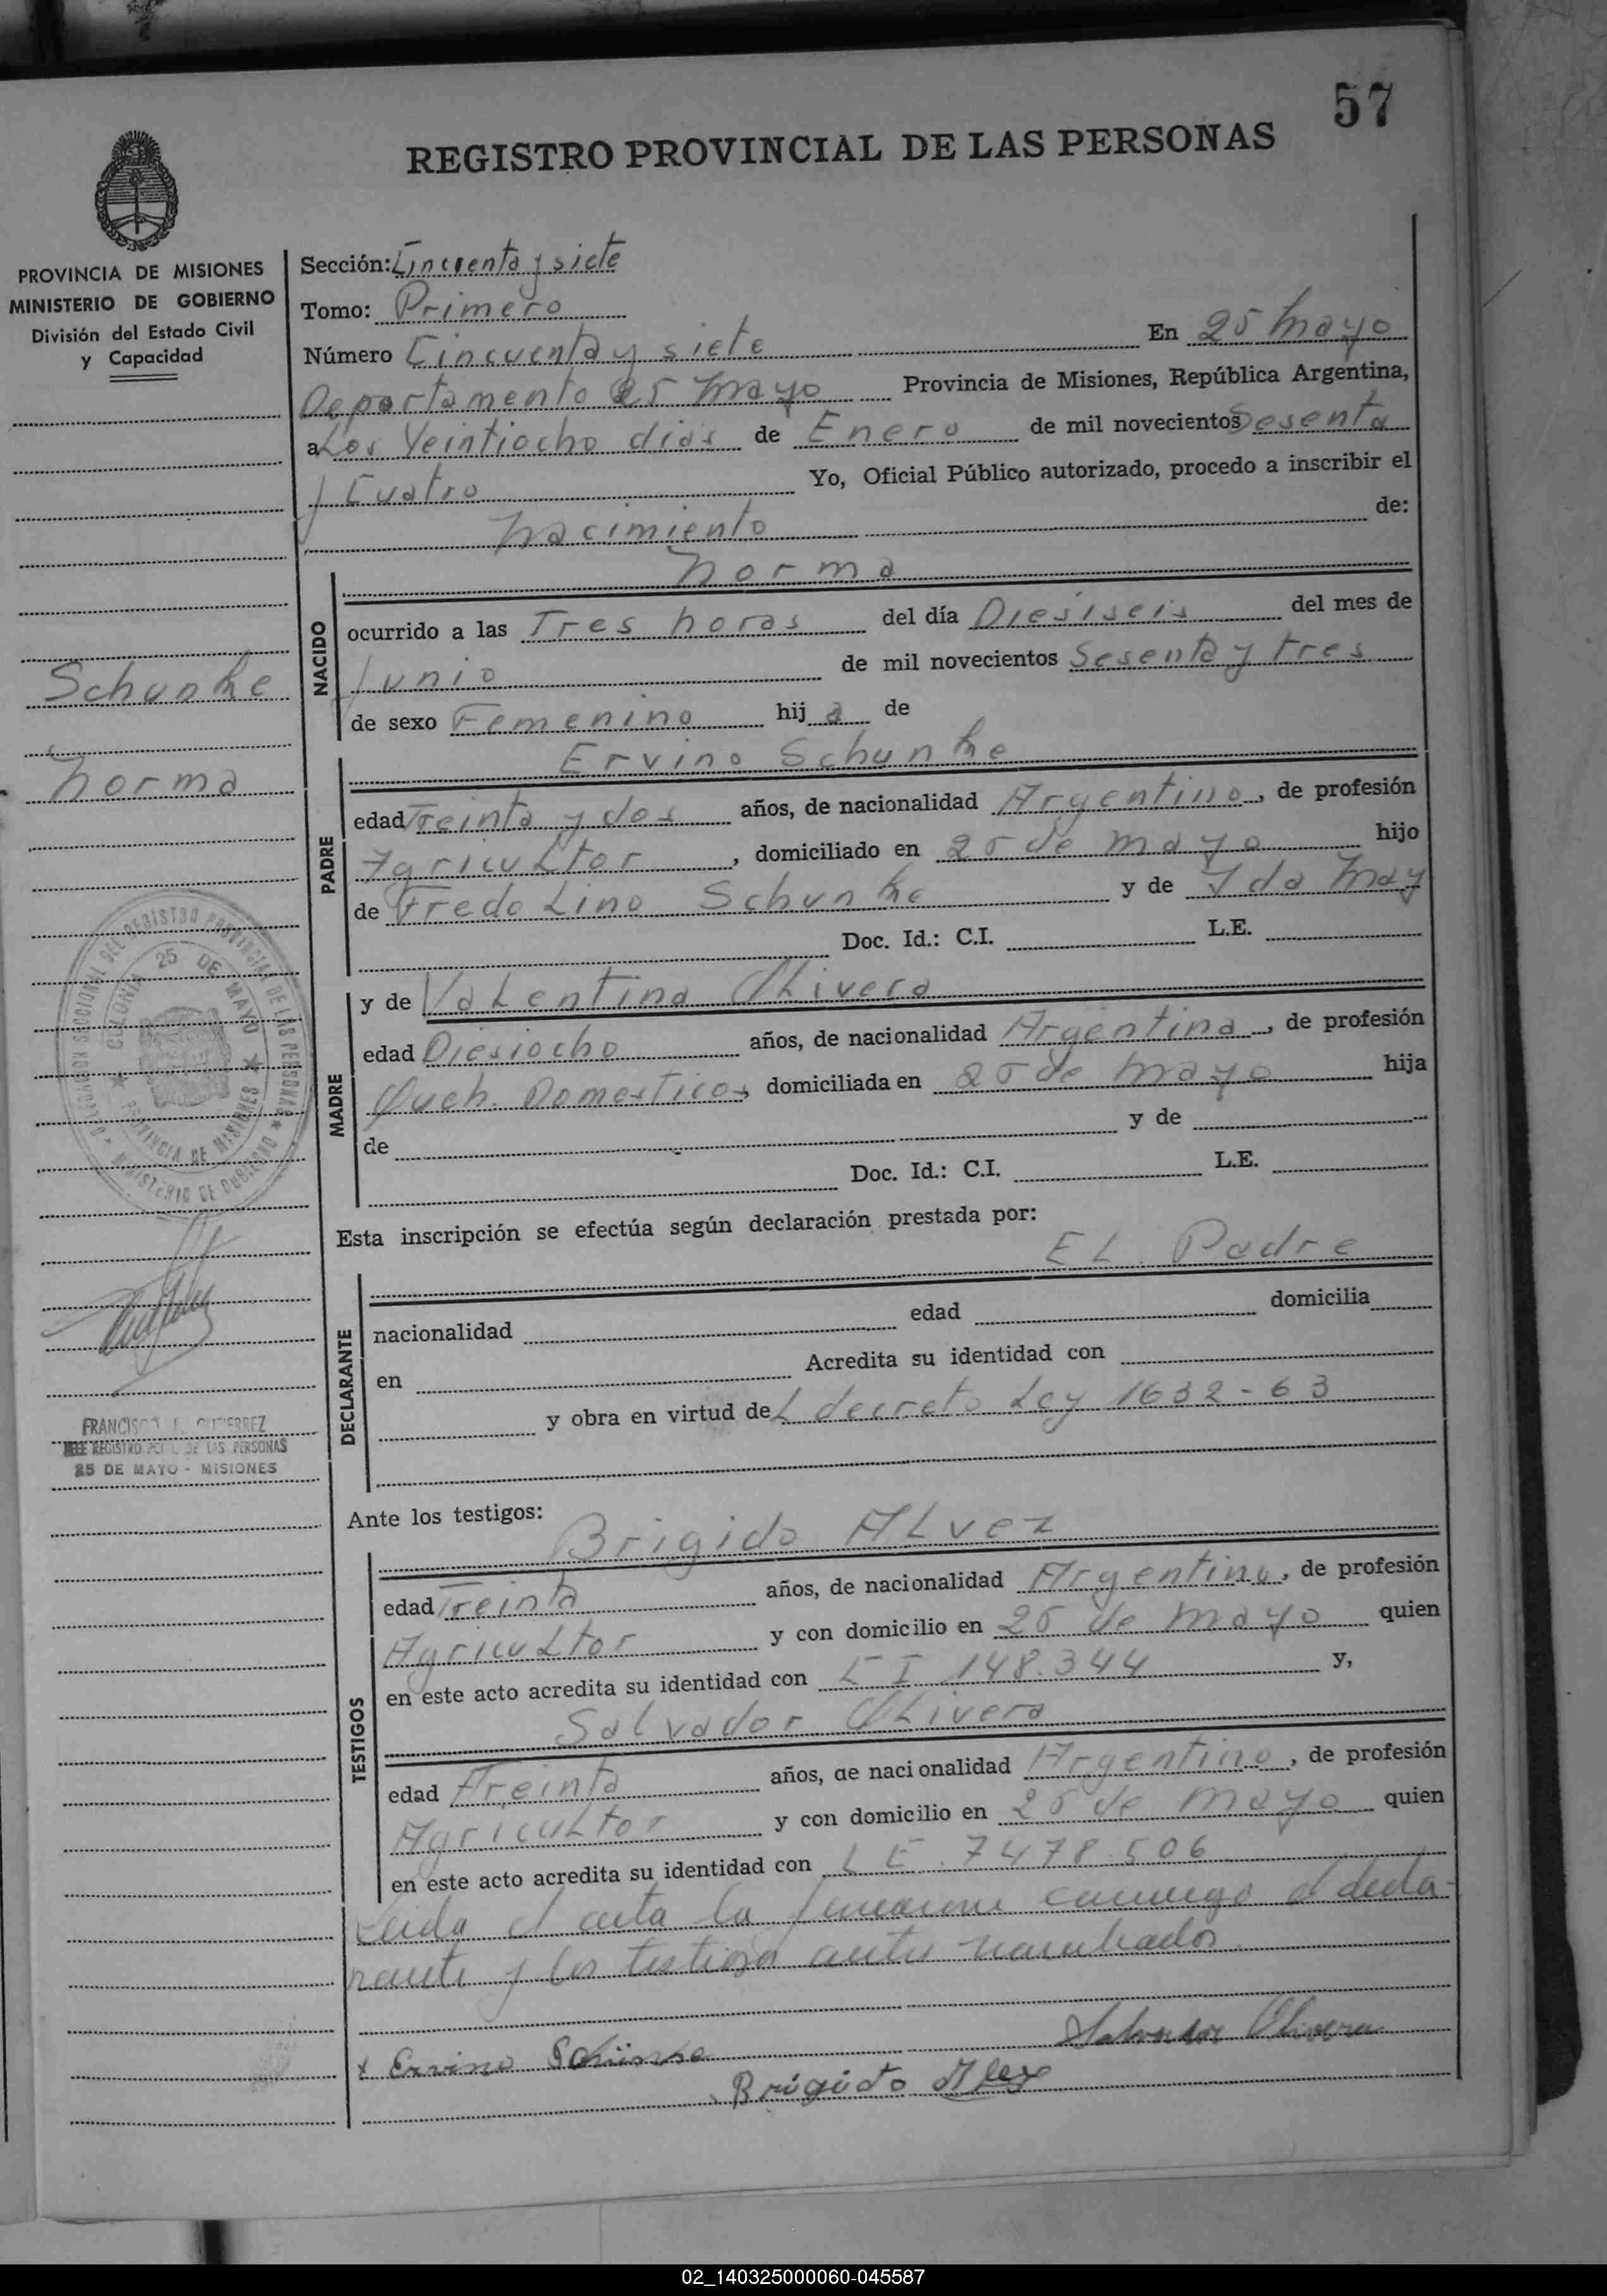 57
REGISTRO PROVINCIAL DE LAS PERSONAS
PROVINCIA DE MISIONES
MINISTERIO DE GOBIERNO
División del Estado Civil
y Capacidad
Schunke
Norma
DELEGACION SECCIONAL DEL REGISTRO PROVINCIAL DE LAS PERSONAS
MINISTERIO DE GOBIERNO
COLONIA 25 DE MAYO
PROVINCIA DE MISIONES
FRANCISCO GUTIERREZ
JEFE REGISTRO DE LAS PERSONAS
25 DE MAYO - MISIONES
Sección: Cincuenta y siete
Tomo: Primero
Número Cincuenta y siete En 25 Mayo
Departamento 25 Mayo Provincia de Misiones, República Argentina,
a Los Veintiocho dias de Enero de mil novecientos Sesenta
y Cuatro Yo, Oficial Público autorizado, procedo a inscribir el
Nacimiento de:
Norma
NACIDO
ocurrido a las Tres horas del día Diesiseis del mes de
Junio de mil novecientos Sesenta y tres
de sexo Femenino hij a de
Ervino Schunke
PADRE
edad Treinta y dos años, de nacionalidad Argentino, de profesión
Agricultor, domiciliado en 25 de Mayo hijo
de Fredo Lino Schunke y de Ida May
Doc. Id.: C.I. L.E.
MADRE
y de Valentina Olivera
edad Diesiocho años, de nacionalidad Argentina, de profesión
Queh. Domesticos, domiciliada en 25 de Mayo hija
de y de
Doc. Id.: C.I. L.E.
Esta inscripción se efectúa según declaración prestada por:
EL Padre
DECLARANTE
nacionalidad edad domicilia
en Acredita su identidad con
y obra en virtud del decreto Ley 1632-63
Ante los testigos:
Brigido Alvez
TESTIGOS
edad Treinta años, de nacionalidad Argentino, de profesión
Agricultor y con domicilio en 25 de Mayo quien
en este acto acredita su identidad con C I 148.344 y,
Salvador Olivera
edad Treinta años, de nacionalidad Argentino, de profesión
Agricultor y con domicilio en 25 de Mayo quien
en este acto acredita su identidad con L E. 7478.506
Leida el acta la firmaron conmigo el decla-
rante y los testigos antes nombrados
x Ervino Schünke Salvador Olivera
Brigido Alez
02_140325000060-045587